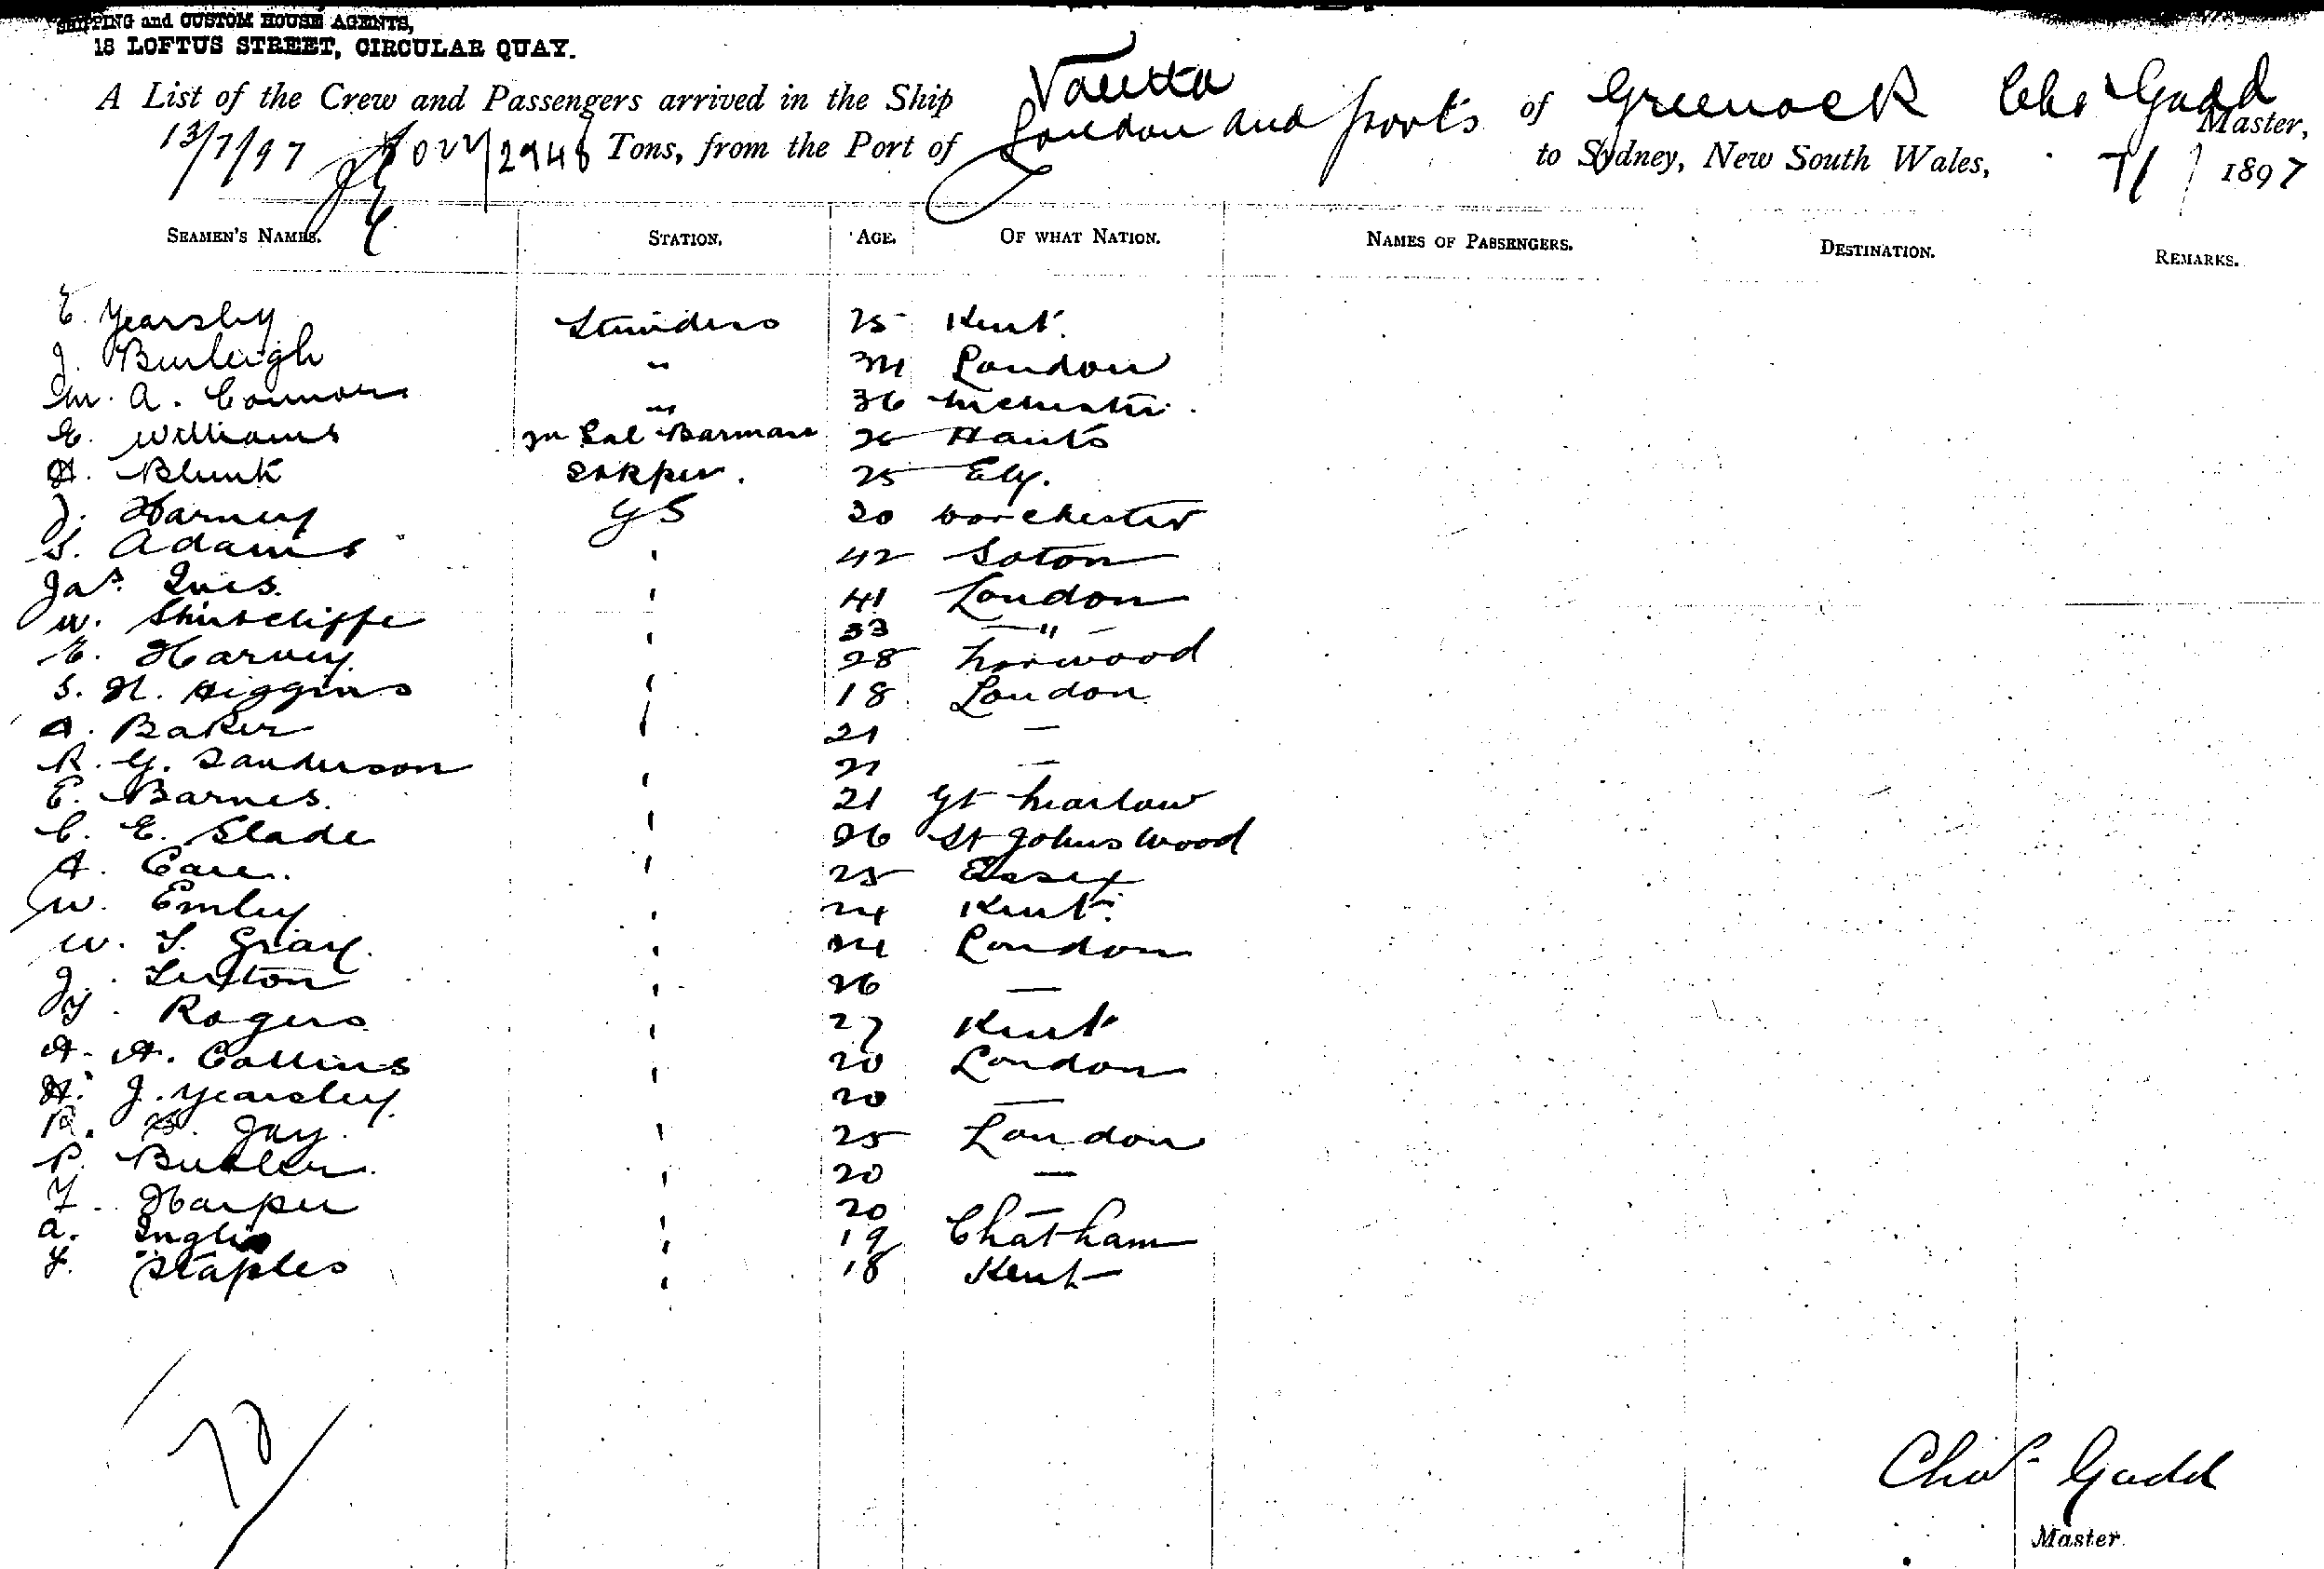 SHIPPING and CUSTOM HOUSE AGENTS,
18 LOFTUS STREET, CIRCULAR QUAY.
A List of the Crew and Passengers arrived in the Ship Valetta of Greenock Chs Gadd Master,
13/7/97 2948 Tons, from the Port of London and ports to Sydney, New South Wales, 7/ 1897
SEAMEN'S NAMES. STATION. AGE. OF WHAT NATION. NAMES OF PASSENGERS. DESTINATION. REMARKS.
E. Yearsley 25 Kent.
J. Burleigh " 34 London
A. Connors " 36
E. Williams Sal Barman 26 Hants
H. Blunk 25 Ely.
J. Harney GS 20 Dorchester
S. Adams ' 42 Soton
Jas. Ives. ' 41 London
W. Shirtcliffe ' 33 — " —
E. Harvey ' 28 Norwood
S. H. Higgins ' 18 London
A. Baker ' 21 —
R. G. Sanderson 21 —
E. Barnes. ' 21 Gt Marlow
C. E. Slade ' 26 St Johns Wood
A. Care. ' 25 Essex
W. Emley ' 24 Kent.
W. T. Gray. ' 24 London
J. Lenton ' 26 —
Rogers ' 27 Kent
A. A. Collins ' 20 London
H. J. Yearsley. ' 20 —
R. Jay. ' 25 London
P. Butler. ' 20 —
F. Harper ' 20 —
A. Inglis ' 19 Chatham
F. Staples ' 18 Kent
Chas Gadd
Master.